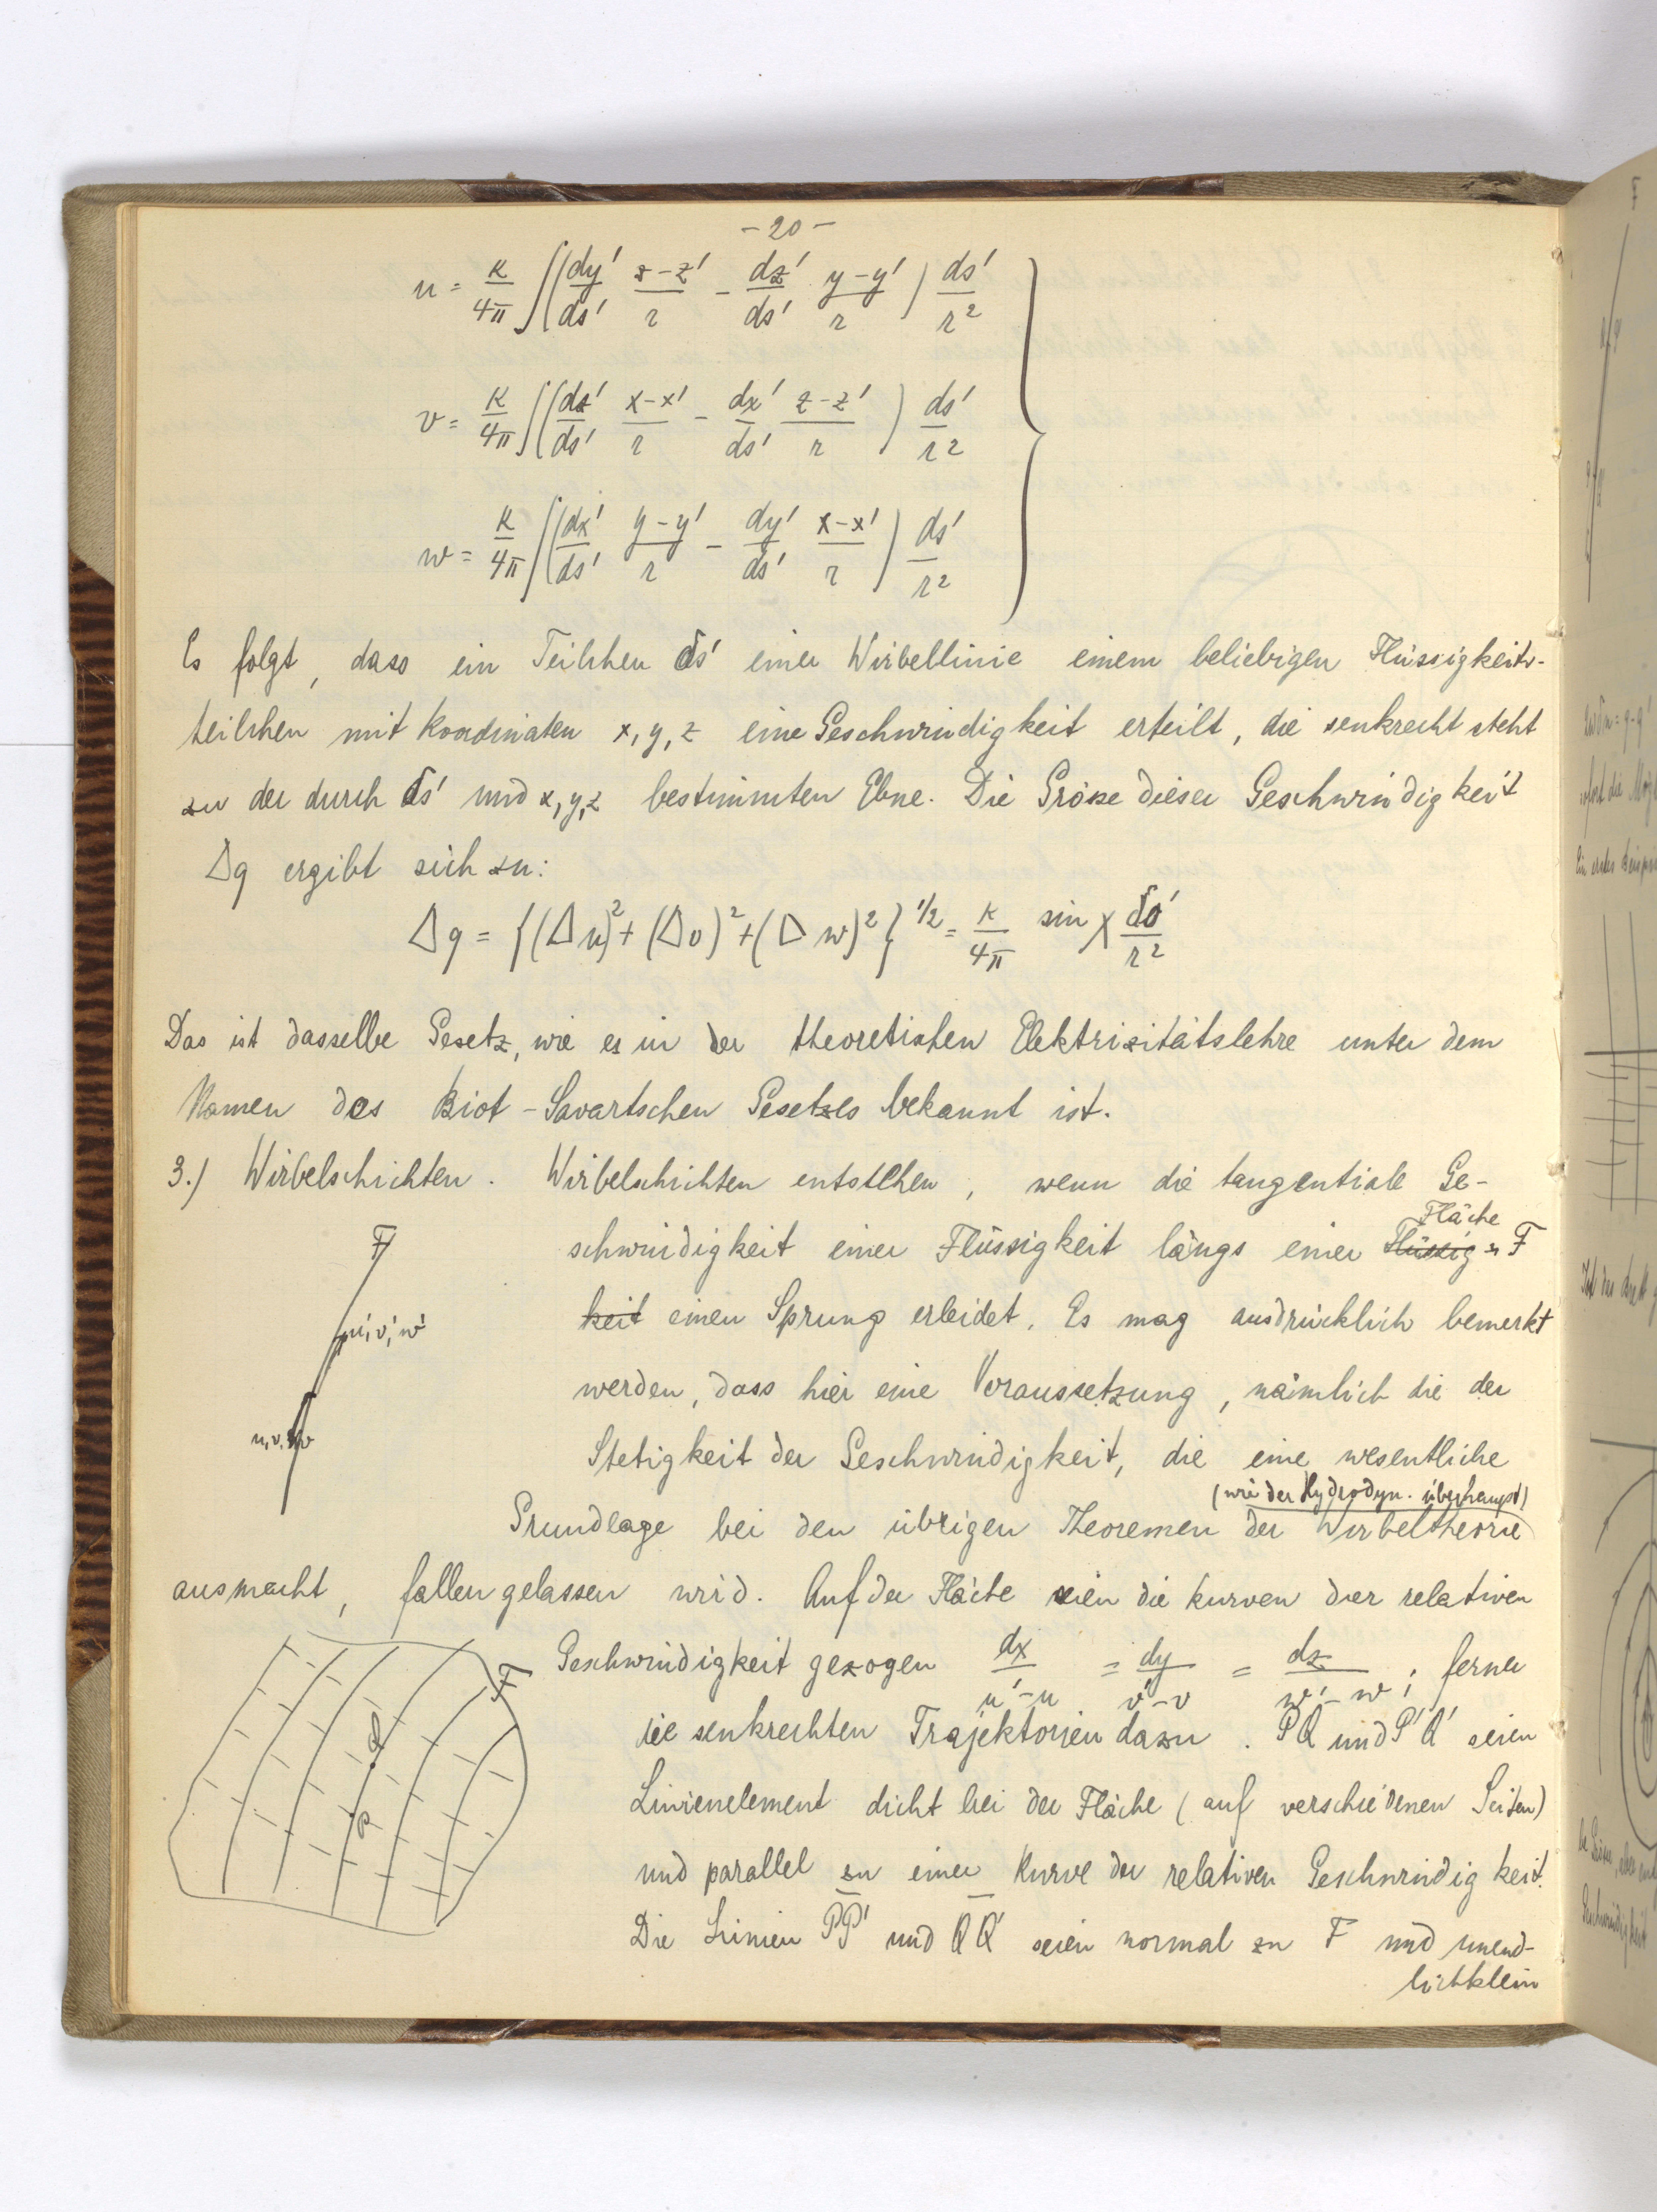 - 20 -
u = κ/4π ∫(dy'/ds' z-z'/r - dz'/ds' y-y'/r) ds'/r²
v = κ/4π ∫(dz'/ds' x-x'/r - dx'/ds' z-z'/r) ds'/r²
w = κ/4π ∫(dx'/ds' y-y'/r - dy'/ds' x-x'/r) ds'/r²
Es folgt, dass ein Teilchen δs' einer Wirbellinie einem beliebigen Flüssigkeits-
teilchen mit Koordinaten x, y, z eine Geschwindigkeit erteilt, die senkrecht steht
zu der durch δs' und x, y, z bestimmten Ebne. Die Grösze dieser Geschwindigkeit
Δq ergibt sich zu:
Δq = {(Δu)² + (Δv)² + (Δw)²}^1/2 = κ/4π sin χ δs'/r²
Das ist dasselbe Gesetz, wie es in der theoretischen Elektrizitätslehre unter dem
Namen des Biot-Savartschen Gesetzes bekannt ist.
3.) Wirbelschichten. Wirbelschichten entstehen, wenn die tangentiale Ge-
Fläche
schwindigkeit einer Flüssigkeit längs einer Flüssig- F
keit einen Sprung erleidet. Es mag ausdrücklich bemerkt
werden, dass hier eine Voraussetzung, nämlich die der
Stetigkeit der Geschwindigkeit, die eine wesentliche
(wie der Hydrodyn. überhaupt)
Grundlage bei den übrigen Theoremen der Wirbeltheorie
ausmacht, fallen gelassen wird. Auf der Fläche seien die Kurven der relativen
Geschwindigkeit gezogen dx/u'-u = dy/v'-v = dz/w'-w; ferner
die senkrechten Trajektorien dazu. PQ und P'Q' seien
Linienelement dicht bei der Fläche (auf verschiedenen Seiten)
und parallel zu einer Kurve der relativen Geschwindigkeit.
Die Linien PP' und QQ' seien normal zu F und unend-
lichklein
F
u', v', w'
u, v, w
F
Q
P